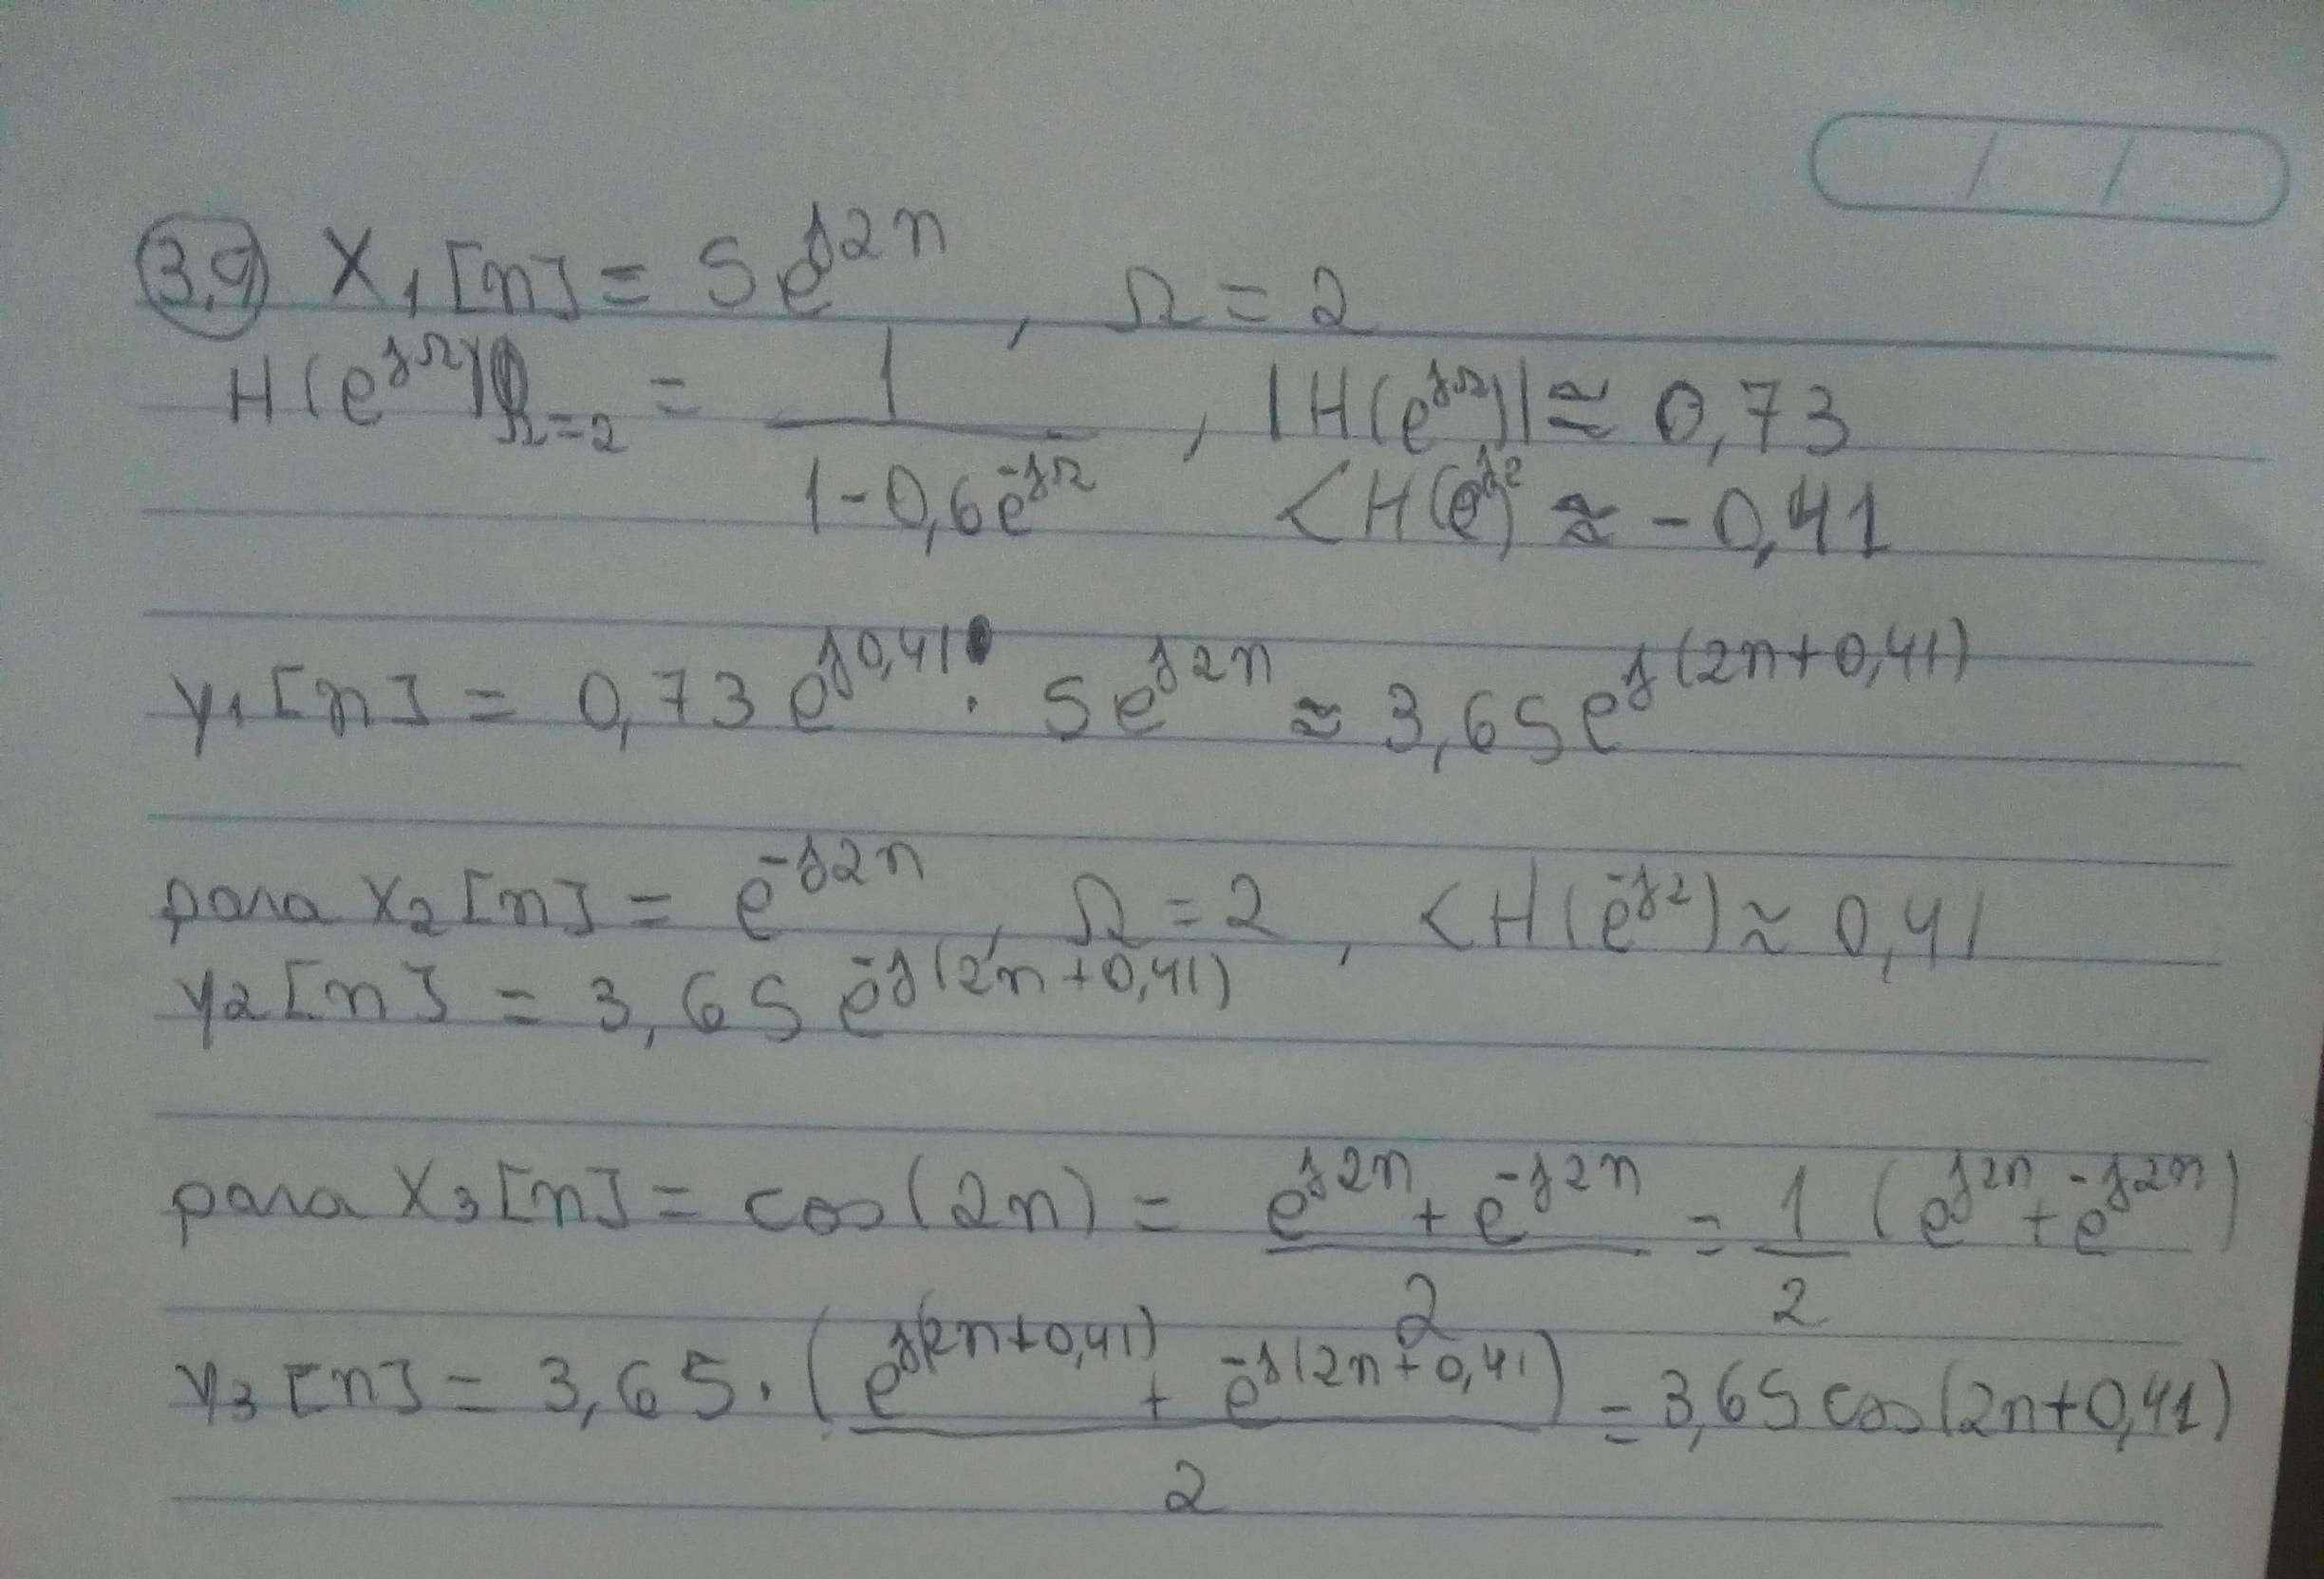 3.9 X₁[n] = 5e^{j2n} , Ω = 2
H(e^{jΩ})|_{Ω=2} = 1/(1-0,6e^{-jΩ}) , |H(e^{jΩ})| ≅ 0,73
<H(e^{j2}) ≅ -0,41
y₁[n] = 0,73e^{j0,41} · 5e^{j2n} ≈ 3,65e^{j(2n+0,41)}
para x₂[n] = e^{-j2n} , Ω = 2 , <H(e^{-j2}) ≈ 0,41
y₂[n] = 3,65e^{-j(2n+0,41)}
para X₃[n] = cos(2n) = (e^{j2n} + e^{-j2n})/2 = 1/2 (e^{j2n} + e^{-j2n})
y₃[n] = 3,65 · (e^{j(2n+0,41)} + e^{-j(2n+0,41})/2 = 3,65 cos(2n+0,41)